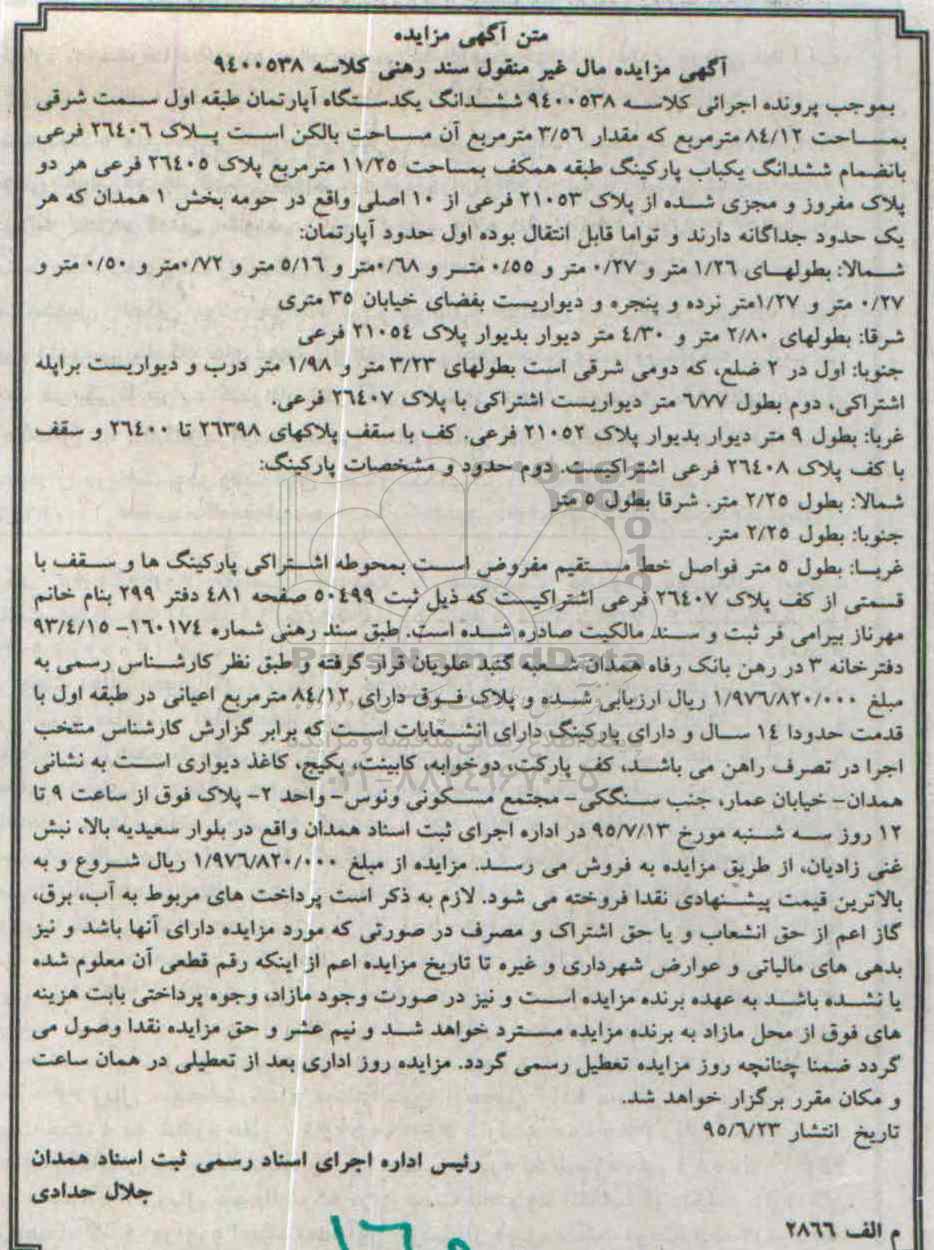 متن آگهی مزایده
آگهی مزایده مال غیر منقول سند رهنی کلاسه ۹٤۰۰۵۳۸
بموجب پرونده اجرائی کلاسه ۹٤۰۰۵۳۸ ششدانگ یکدستگاه آپارتمان طبقه اول سمت شرقی
بمساحت ۸٤/۱۲ مترمربع که مقدار ۳/۵٦ مترمربع آن مساحت بالکن است پلاک ۲٦٤۰٦ فرعی
بانضمام ششدانگ یکباب پارکینگ طبقه همکف بمساحت ۱۱/۲۵ مترمربع پلاک ۲٦٤۰۵ فرعی هر دو
پلاک مفروز و مجزی شده از پلاک ۲۱۰۵۳ فرعی از ۱۰ اصلی واقع در حومه بخش ۱ همدان که هر
یک حدود جداگانه دارند و تواما قابل انتقال بوده اول حدود آپارتمان:
شمالا: بطولهای ۱/۲٦ متر و ۰/۲۷ متر و ۰/۵۵ متر و ۰/٦۸متر و ۵/۱٦ متر و ۰/۷۲متر و ۰/۵۰ متر و
۰/۲۷ متر و ۱/۲۷متر نرده و پنجره و دیواریست بفضای خیابان ۳۵ متری
شرقا: بطولهای ۲/۸۰ متر و ٤/۳۰ متر دیوار بدیوار پلاک ۲۱۰۵٤ فرعی
جنوبا: اول در ۲ ضلع، که دومی شرقی است بطولهای ۳/۲۳ متر و ۱/۹۸ متر درب و دیواریست براپله
اشتراکی، دوم بطول ٦/۷۷ متر دیواریست اشتراکی با پلاک ۲٦٤۰۷ فرعی.
غربا: بطول ۹ متر دیوار بدیوار پلاک ۲۱۰۵۲ فرعی. کف با سقف پلاکهای ۲٦۳۹۸ تا ۲٦٤۰۰ و سقف
با کف پلاک ۲٦٤۰۸ فرعی اشتراکیست. دوم حدود و مشخصات پارکینگ:
شمالا: بطول ۲/۲۵ متر. شرقا بطول ۵ متر
جنوبا: بطول ۲/۲۵ متر.
غربا: بطول ۵ متر فواصل خط مستقیم مفروض است بمحوطه اشتراکی پارکینگ ها و سقف با
قسمتی از کف پلاک ۲٦٤۰۷ فرعی اشتراکیست که ذیل ثبت ۵۰٤۹۹ صفحه ٤۸۱ دفتر ۲۹۹ بنام خانم
مهرناز بیرامی فر ثبت و سند مالکیت صادره شده است. طبق سند رهنی شماره ۱٦۰۱۷٤- ۹۳/٤/۱۵
دفترخانه ۳ در رهن بانک رفاه همدان شعبه گنبد علویان قرار گرفته و طبق نظر کارشناس رسمی به
مبلغ ۱/۹۷٦/۸۲۰/۰۰۰ ریال ارزیابی شده و پلاک فوق دارای ۸٤/۱۲ مترمربع اعیانی در طبقه اول با
قدمت حدودا ۱٤ سال و دارای پارکینگ دارای انشعابات است که برابر گزارش کارشناس منتخب
اجرا در تصرف راهن می باشد، کف پارکت، دوخوابه، کابینت، پکیج، کاغذ دیواری است به نشانی
همدان- خیابان عمار، جنب سنگکی- مجتمع مسکونی ونوس- واحد ۲- پلاک فوق از ساعت ۹ تا
۱۲ روز سه شنبه مورخ ۹۵/۷/۱۳ در اداره اجرای ثبت اسناد همدان واقع در بلوار سعیدیه بالا، نبش
غنی زادیان، از طریق مزایده به فروش می رسد. مزایده از مبلغ ۱/۹۷٦/۸۲۰/۰۰۰ ریال شروع و به
بالاترین قیمت پیشنهادی نقدا فروخته می شود. لازم به ذکر است پرداخت های مربوط به آب، برق،
گاز اعم از حق انشعاب و یا حق اشتراک و مصرف در صورتی که مورد مزایده دارای آنها باشد و نیز
بدهی های مالیاتی و عوارض شهرداری و غیره تا تاریخ مزایده اعم از اینکه رقم قطعی آن معلوم شده
یا نشده باشد به عهده برنده مزایده است و نیز در صورت وجود مازاد، وجوه پرداختی بابت هزینه
های فوق از محل مازاد به برنده مزایده مسترد خواهد شد و نیم عشر و حق مزایده نقدا وصول می
گردد ضمنا چنانچه روز مزایده تعطیل رسمی گردد. مزایده روز اداری بعد از تعطیلی در همان ساعت
و مکان مقرر برگزار خواهد شد.
تاریخ انتشار ۹۵/٦/۲۳
رئیس اداره اجرای اسناد رسمی ثبت اسناد همدان
جلال حدادی
م الف ۲۸٦٦
ParsNamadData